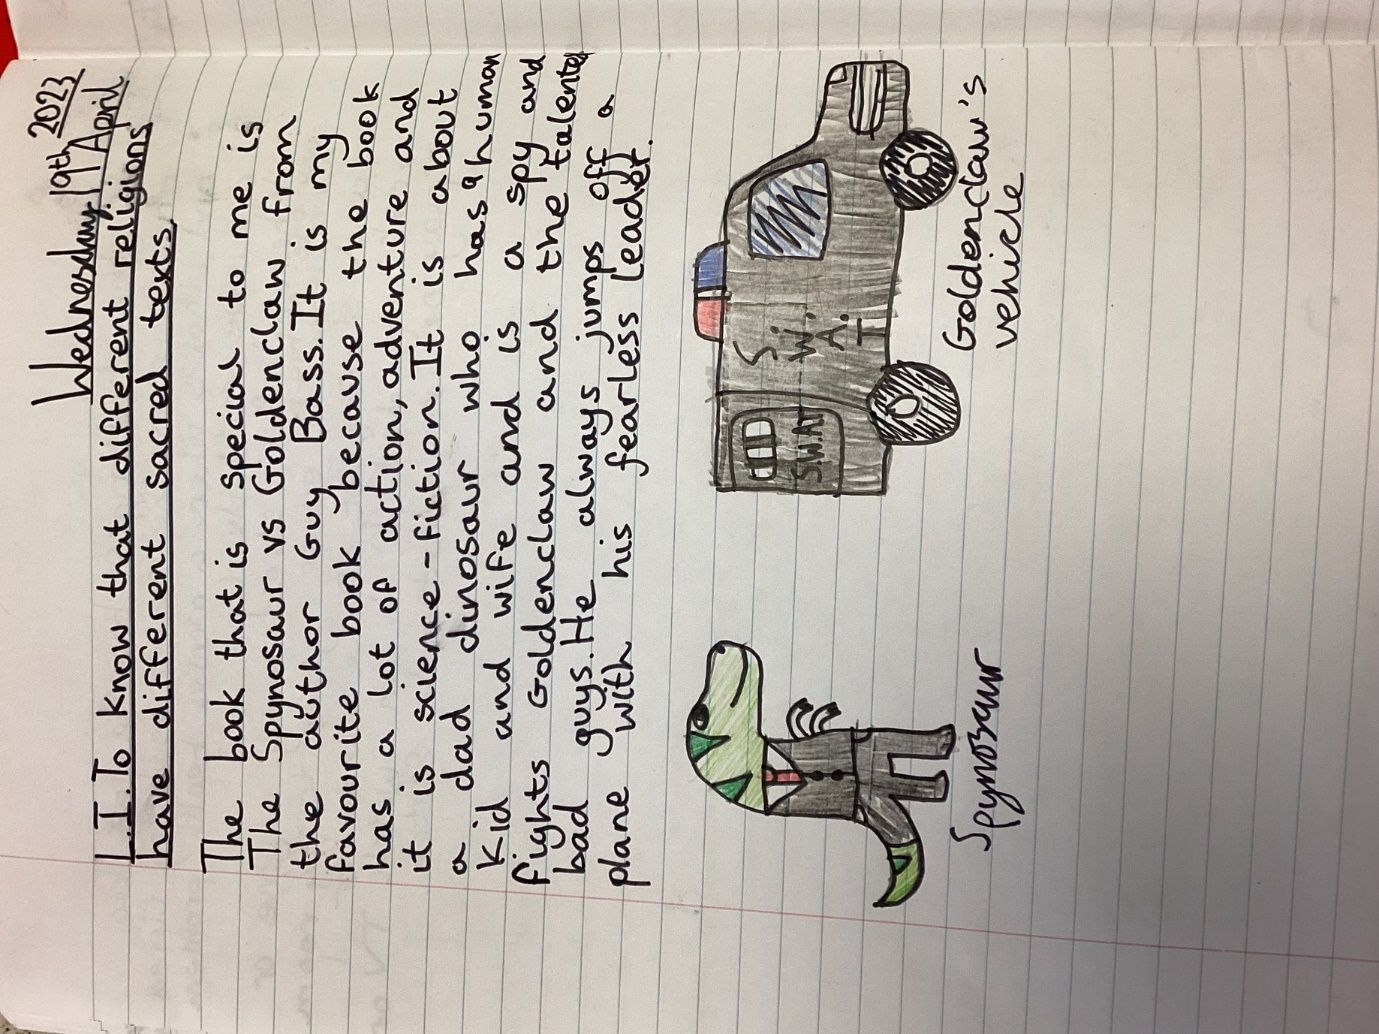 Wednesday 19th April 2023
L.I. To know that different religions
have different sacred texts.
The book that is special to me is
The Spynosaur vs Goldenclaw from
the author Guy Bass. It is my
favourite book because the book
has a lot of action, adventure and
it is science-fiction. It is about
a dad dinosaur who has a human
kid and wife and is a spy and
fights Goldenclaw and the talented
bad guys. He always jumps off a
plane with his fearless leader.
S.W.AT
S
W.
A.
T
Spynosaur
Goldenclaw's
vehicle